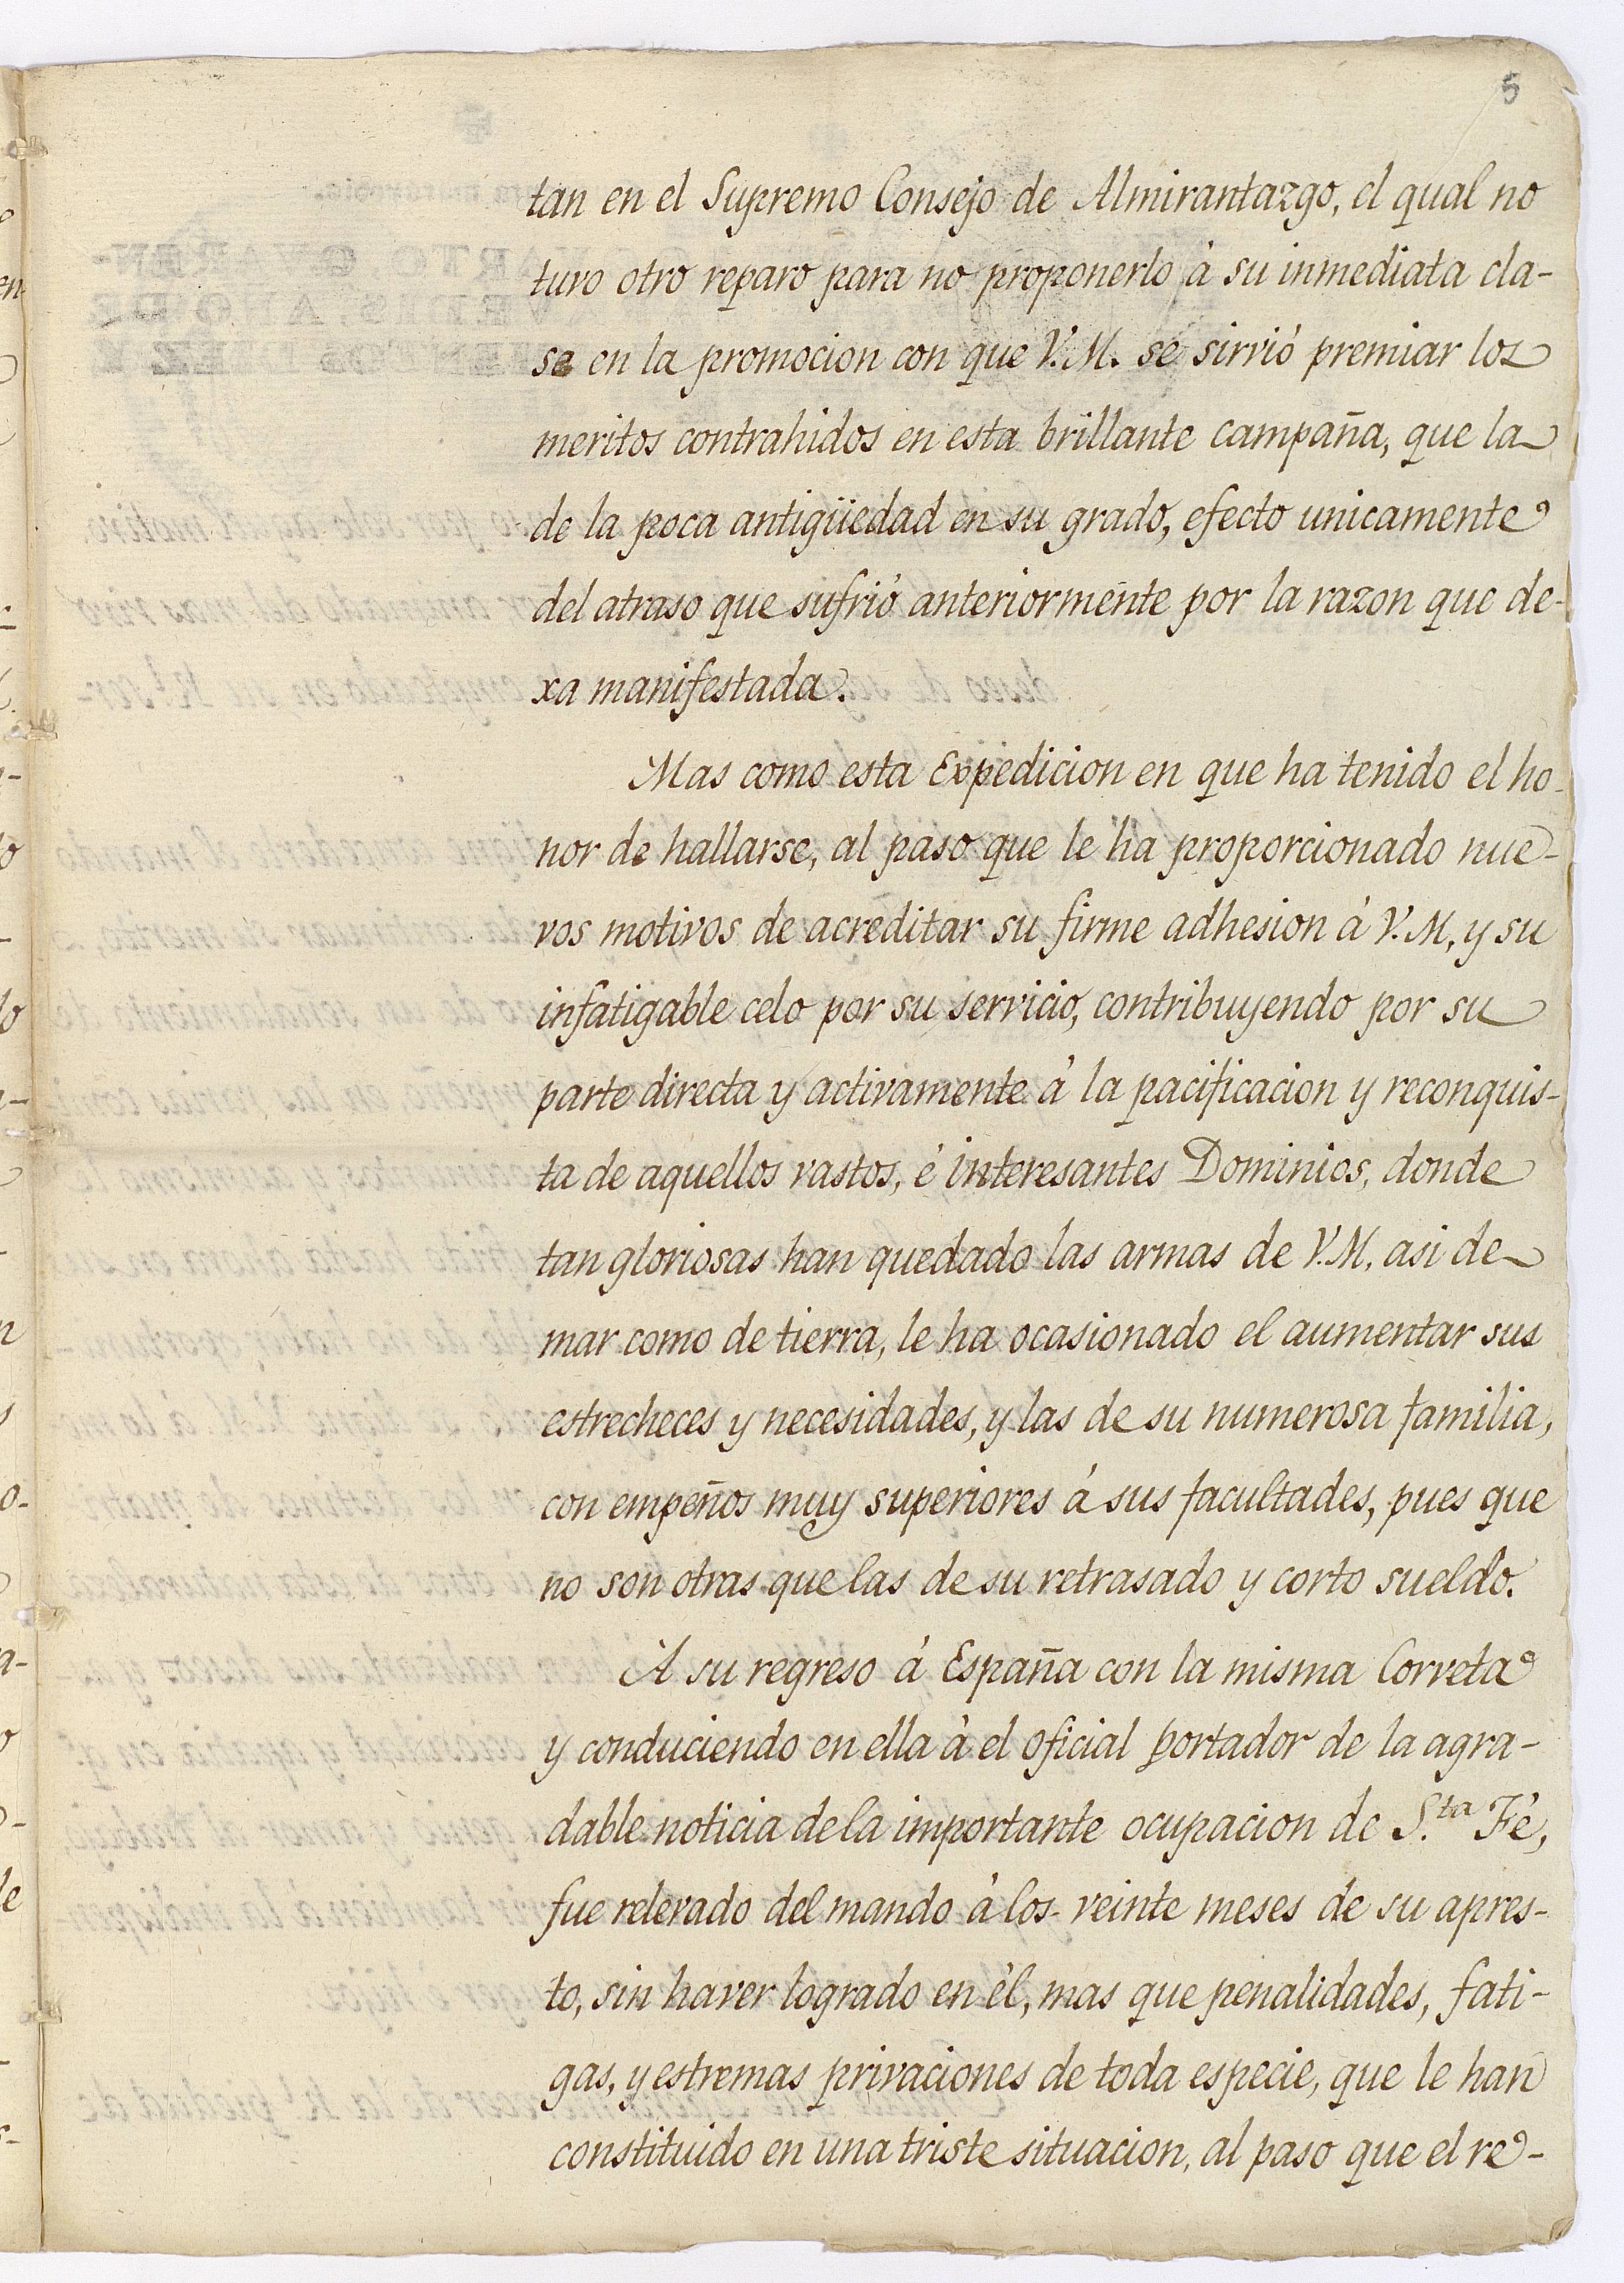 5
tan en el Supremo Consejo de Almirantazgo, el qual no
tuvo otro reparo para no proponerlo à su inmediata cla-
se en la promocion con que V.M. se sirvió premiar los
meritos contrahidos en esta brillante campaña, que la
de la poca antigüedad en su grado, efecto unicamente
del atraso que sufrió anteriormente por la razon que de-
xa manifestada.
Mas como esta Expedicion en que ha tenido el ho-
nor de hallarse, al paso que le ha proporcionado nue-
vos motivos de acreditar su firme adhesion à V.M, y su
infatigable celo por su servicio, contribuyendo por su
parte directa y activamente à la pacificacion y reconquis-
ta de aquellos vastos, é interesantes Dominios, donde
tan gloriosas han quedado las armas de V.M. asi de
mar como de tierra, le ha ocasionado el aumentar sus
estrecheces y necesidades, y las de su numerosa familia,
con empeños muy superiores á sus facultades, pues que
no son otras que las de su retrasado y corto sueldo.
A su regreso á España con la misma Corveta
y conduciendo en ella à el oficial portador de la agra-
dable noticia de la importante ocupacion de S.ta Fé,
fue relevado del mando à los veinte meses de su apres-
to, sin haver logrado en èl, mas que penalidades, fati-
gas, y estremas privaciones de toda especie, que le han
constituido en una triste situacion, al paso que el re-